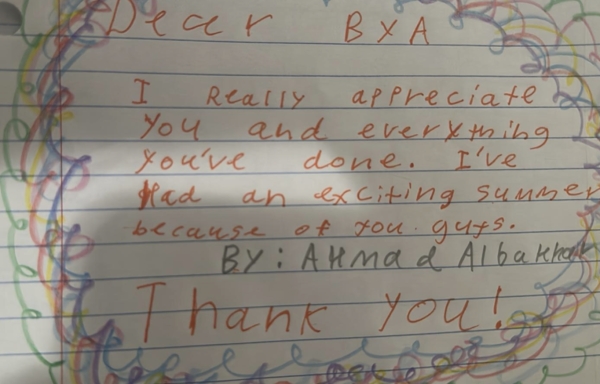 Dear BXA
I Really appreciate
you and everything
you've done. I've
Had an exciting summer
because of you guys.
BY: AHmad
Thank you!